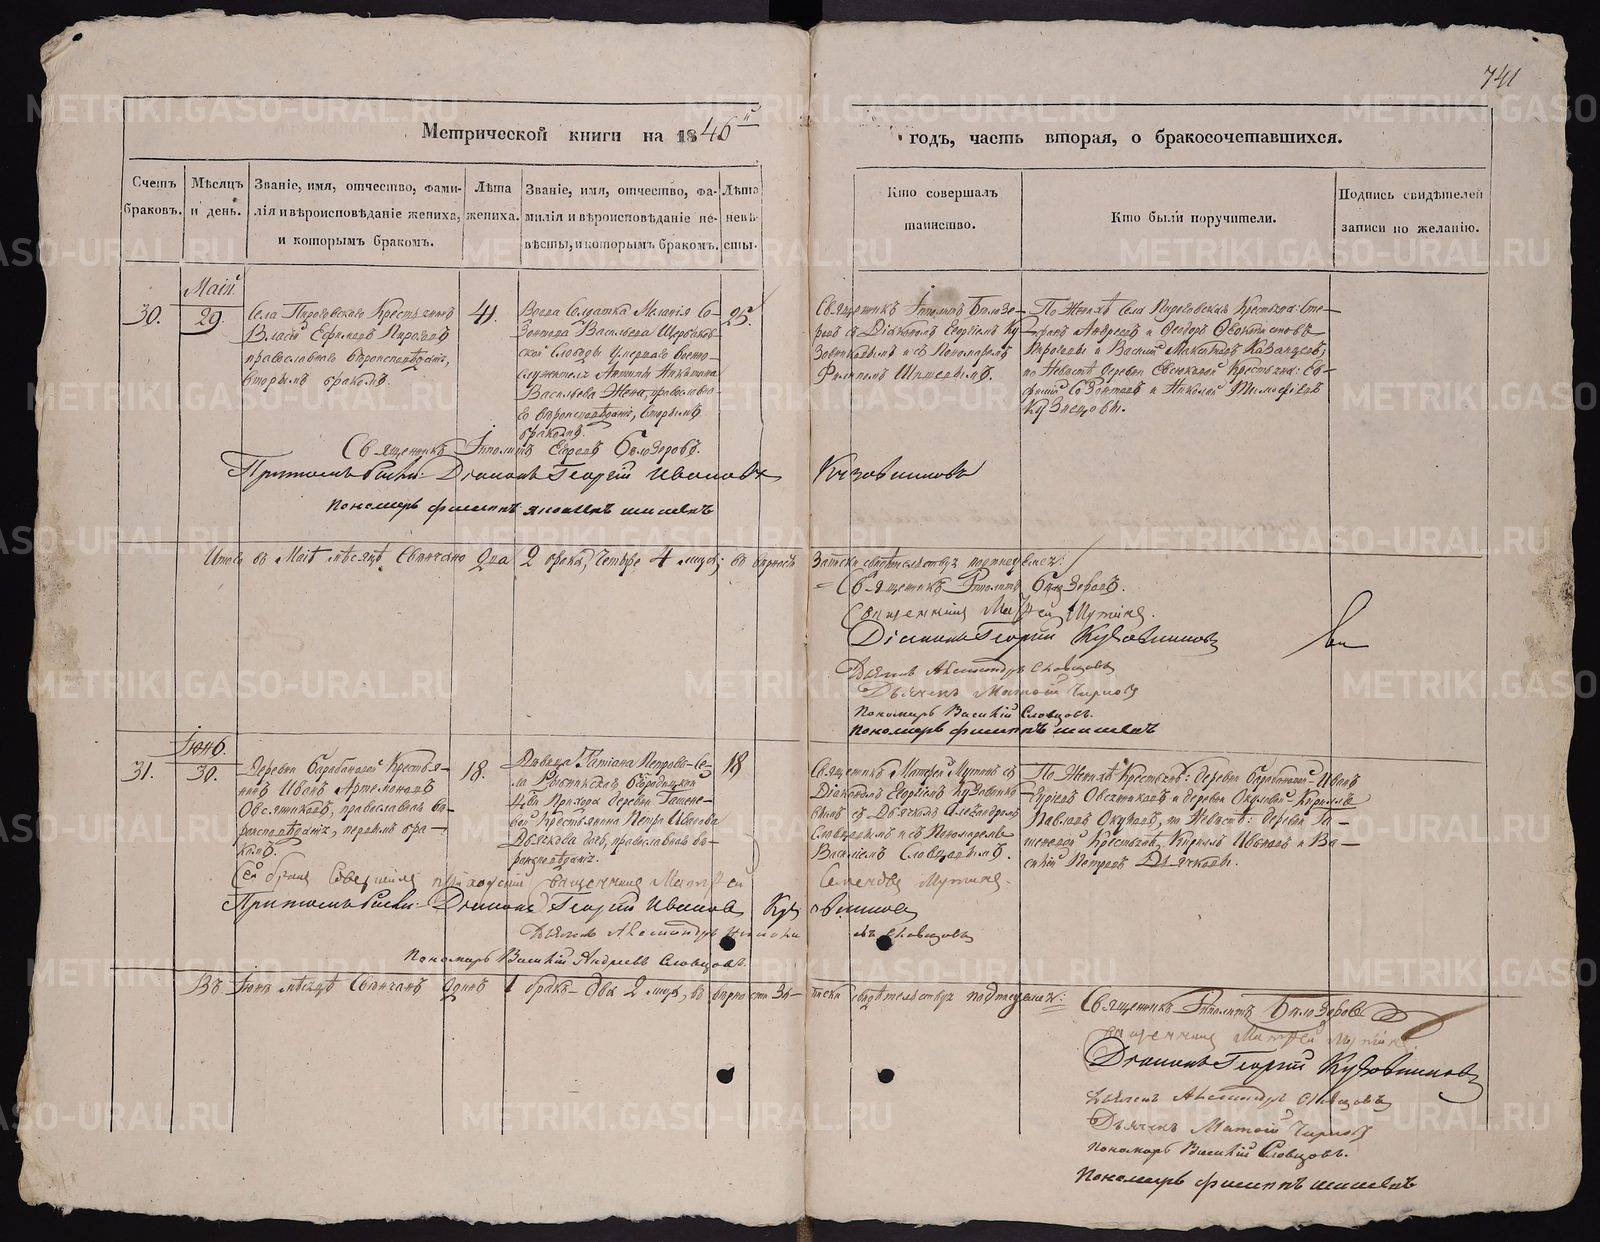 741
Метрической книги на 1846й
годъ, часть вторая, о бракосочетавшихся.
Счетъ браковъ.
Мѣсяцъ и день.
Званіе, имя, отчество, фами-
лія и вѣроисповѣданіе жениха,
и которымъ бракомъ.
Лѣта
жениха.
Званіе, имя, отчество, фа-
милія и вѣроисповѣданіе не-
вѣсты, и которымъ бракомъ.
Лѣта
невѣ-
сты.
Кто совершалъ
таинство.
Кто были поручители.
Подпись свидѣтелей
записи по желанію.
Маій
30.
29
Села Пироговскаго Крестьянинъ
Власій Ефимовъ Пироговъ
православнаго вѣроисповѣданія,
вторымъ бракомъ.
41.
Вдова Солдатка Меланія Со-
зонтова Васильева Щербаков-
ской слободы умершаго Военно-
служителя Антипы Никитина
Васильева Жена, православна-
го вѣроисповѣданія, вторымъ
бракомъ.
25.
Священникъ Ипполитъ Бѣлозе-
ровъ съ Діакономъ Георгіемъ Ку-
зовниковымъ и съ Пономаремъ
Филиппомъ Шишевымъ.
По Женихѣ села Пироговскаго Крестьяна: Сте-
фанъ Андреевъ и Ѳеодоръ Ѳеоктистовъ
Пироговы и Василій Максимовъ Казанцовъ,
по Невѣстѣ деревни Свѣжовой Крестьяна: Со-
Созонтовъ и Николай Тимофеевъ
Кузнецовы.
Священникъ Ипполитъ Егоровъ Бѣлозеровъ.
При томъ были: Діаконъ Георгій Ивановъ Кузовниковъ
Пономарь Филиппъ Яковлевъ Шишевъ
Итого въ Маіѣ мѣсяцѣ Свѣнчано два 2 брака, четыре 4 лица; въ вѣрности
записки свидѣтельствуя подписуемся:
Священникъ Ипполитъ Бѣлозеровъ.
Священникъ Матфей Мутинъ.
Діаконъ Георгій Кузовниковъ
Дьячекъ Александръ Словцовъ
Дьячекъ Матвій Чирковъ
Пономарь Василій Словцовъ.
Пономарь Филиппъ Шишевъ
Іюнь.
31.
30.
Деревни Барабановой Крестья-
нинъ Иванъ Артемоновъ
Овсянниковъ, православнаго вѣ-
роисповѣданія, первымъ бра-
комъ.
18.
Дѣвица Татіана Петрова се-
ла Рыбниковскаго Богородицкой
Цркви Прихода деревни Ташне-
вой крестьянина Петра Иванова
Дьячкова дочь, православнаго вѣ-
роисповѣданія.
18
Священникъ Матфей Мутинъ съ
Діакономъ Георгіемъ Кузовнико-
вымъ съ Дьячкомъ Александромъ
Словцовымъ и съ Пономаремъ
Василіемъ Словцовымъ.
По Женихѣ Крестьяна: деревни Барабановой Иванъ
Овсянниковъ и деревни Окуловой Кириллъ
Павловъ Окуловъ, по Невѣстѣ: деревни Та-
шневой Крестьяна Кириллъ Ивановъ и Ва-
силій Петровъ Дьячковы.
Сей бракъ совершилъ приходскій священникъ Матфей Семеновъ Мутинъ.
При томъ были: Діаконъ Георгій Ивановъ Кузовниковъ
Дьячекъ Александръ Словцовъ
Пономарь Василій Андреевъ Словцовъ.
Въ Іюнѣ мѣсяцѣ Свѣнчанъ одинъ 1 бракъ – два 2 лица, въ вѣрности за-
писки свидѣтельствуя подписуемся:
Священникъ Ипполитъ Бѣлозеровъ
Священникъ Матфей Мутинъ.
Діаконъ Георгій Кузовниковъ
Дьячекъ Александръ Словцовъ
Дьячекъ Матвій Чирковъ
Пономарь Василій Словцовъ.
Пономарь Филиппъ Шишевъ
METRIKI.GASO-URAL.RU